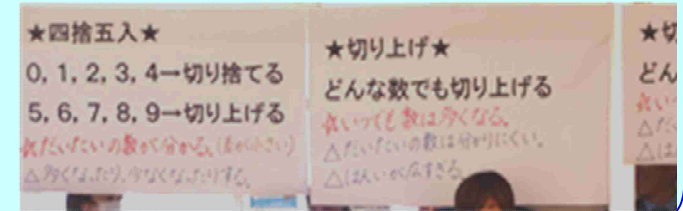 ★四捨五入★
0, 1, 2, 3, 4→切り捨てる
5, 6, 7, 8, 9→切り上げる
☆だいたいの数が分かる。(差が小さい)
△多くなったり、少なくなったりする。
★切り上げ★
どんな数でも切り上げる
☆いつでも数は多くなる。
△だいたいの数は分かりにくい。
△はんいが広すぎる
★切
どん